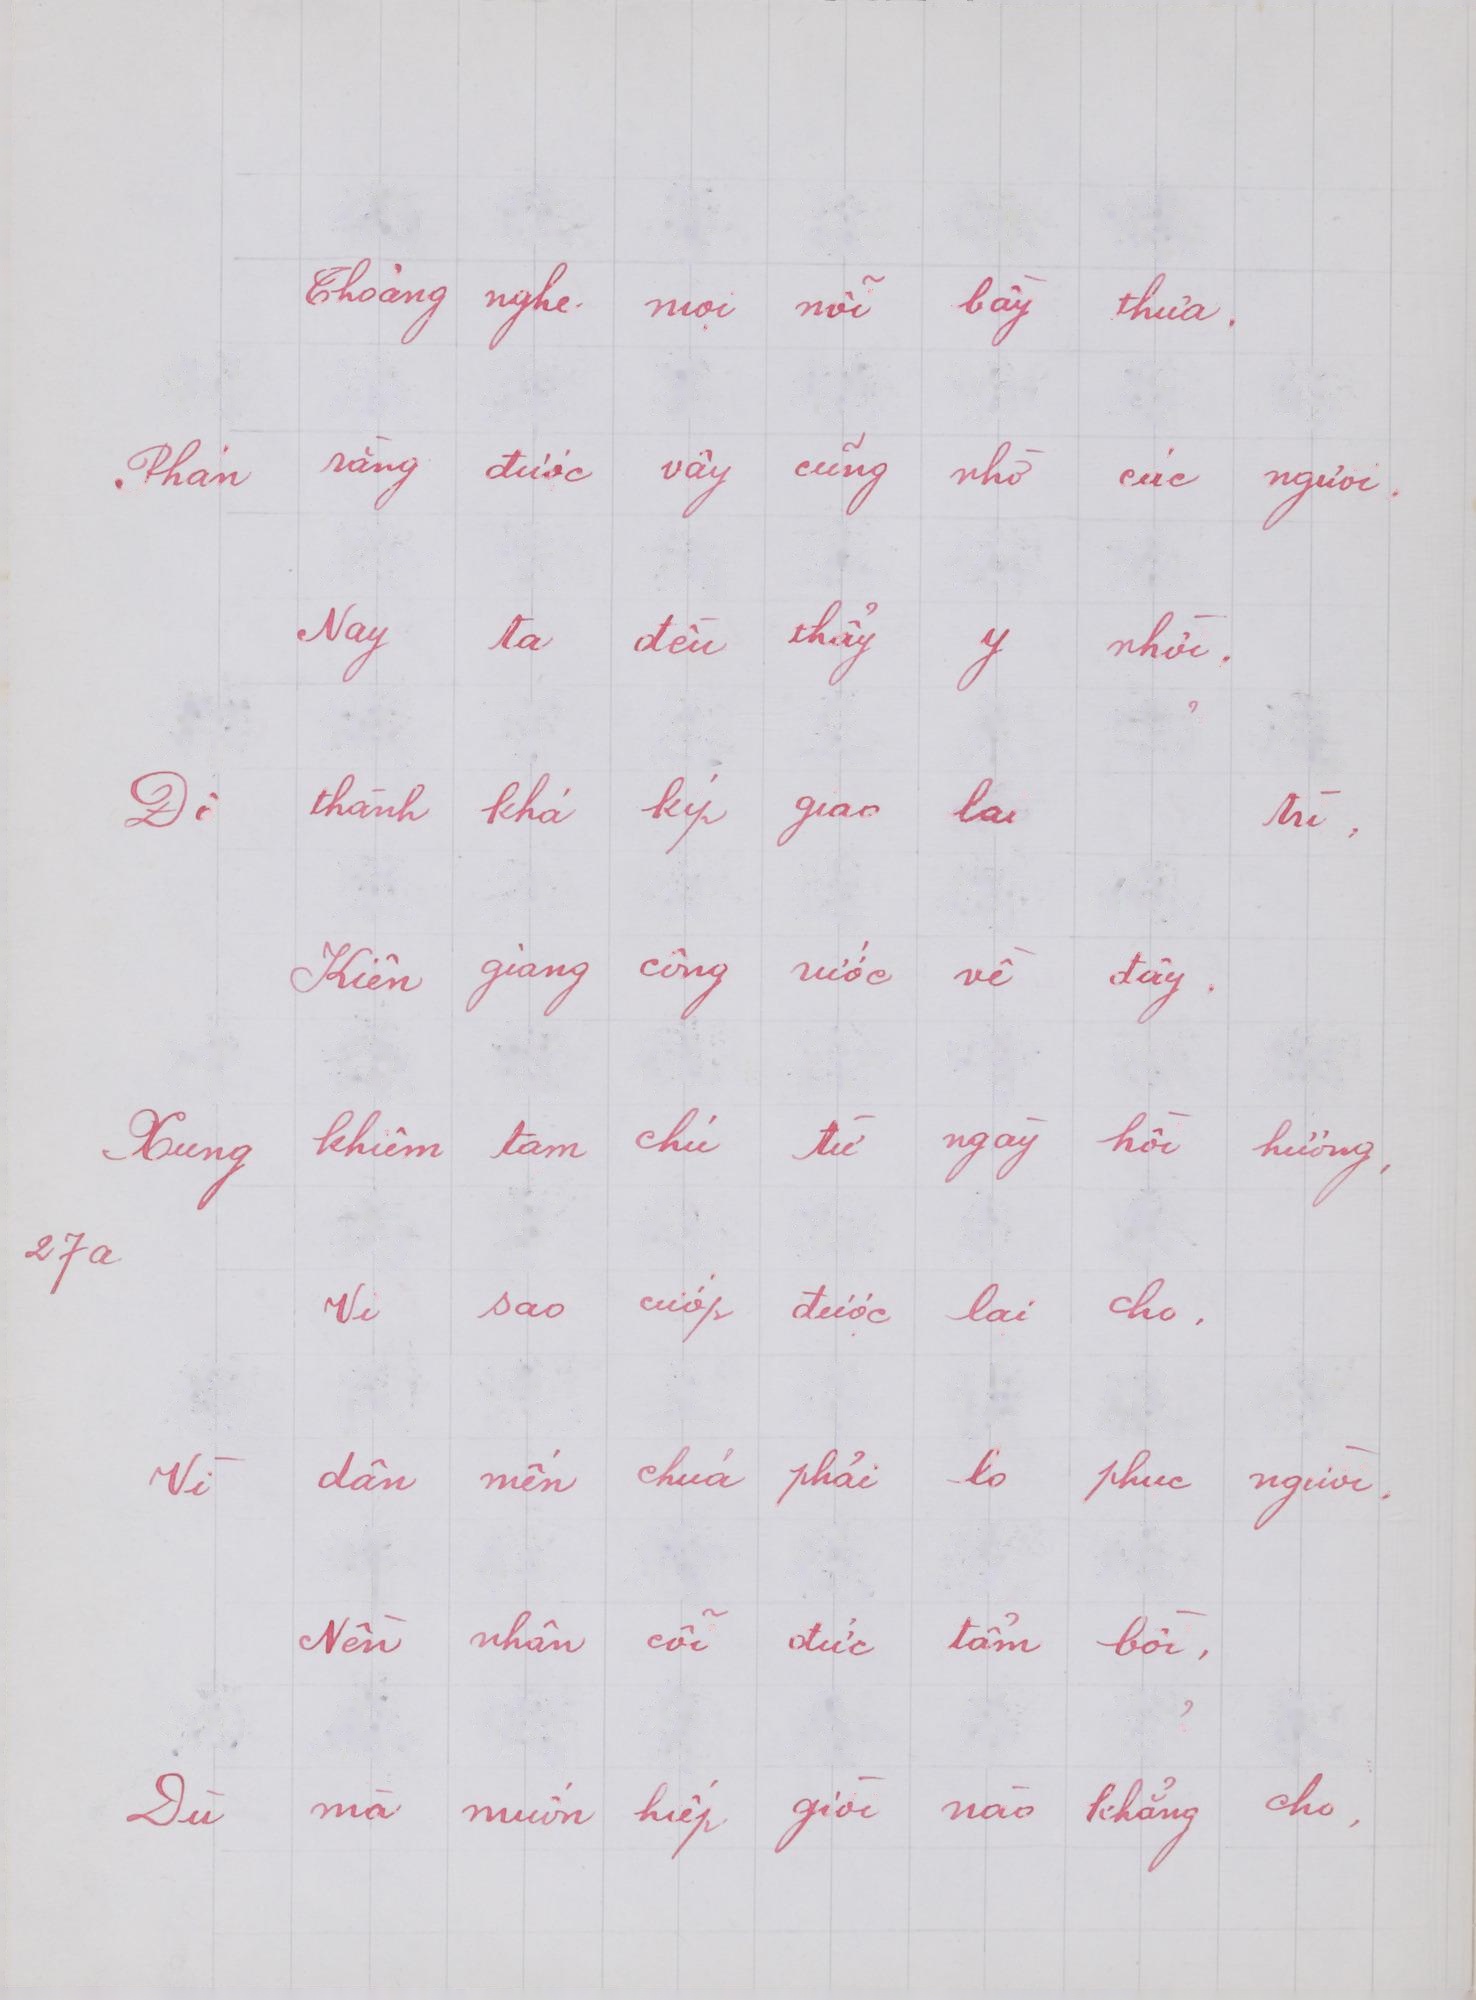 Thoảng nghe mọi nỗi bầy thưa.
Phán rằng được vây cũng nhờ cúc người.
Nay ta đều thẩy y nhời.
Đô thành khá kíp giao lai trì,
Kiên giang công rước về đây.
Xưng khiêm tam chú từ ngày hồi hương,
27a
Vi sao cướp được lai cho,
Vì dân mến chuá phải lo phuc người.
Nền nhân cỗi đức tẩm bồi,
Dù mà muốn hiếp giời nào khẳng cho,